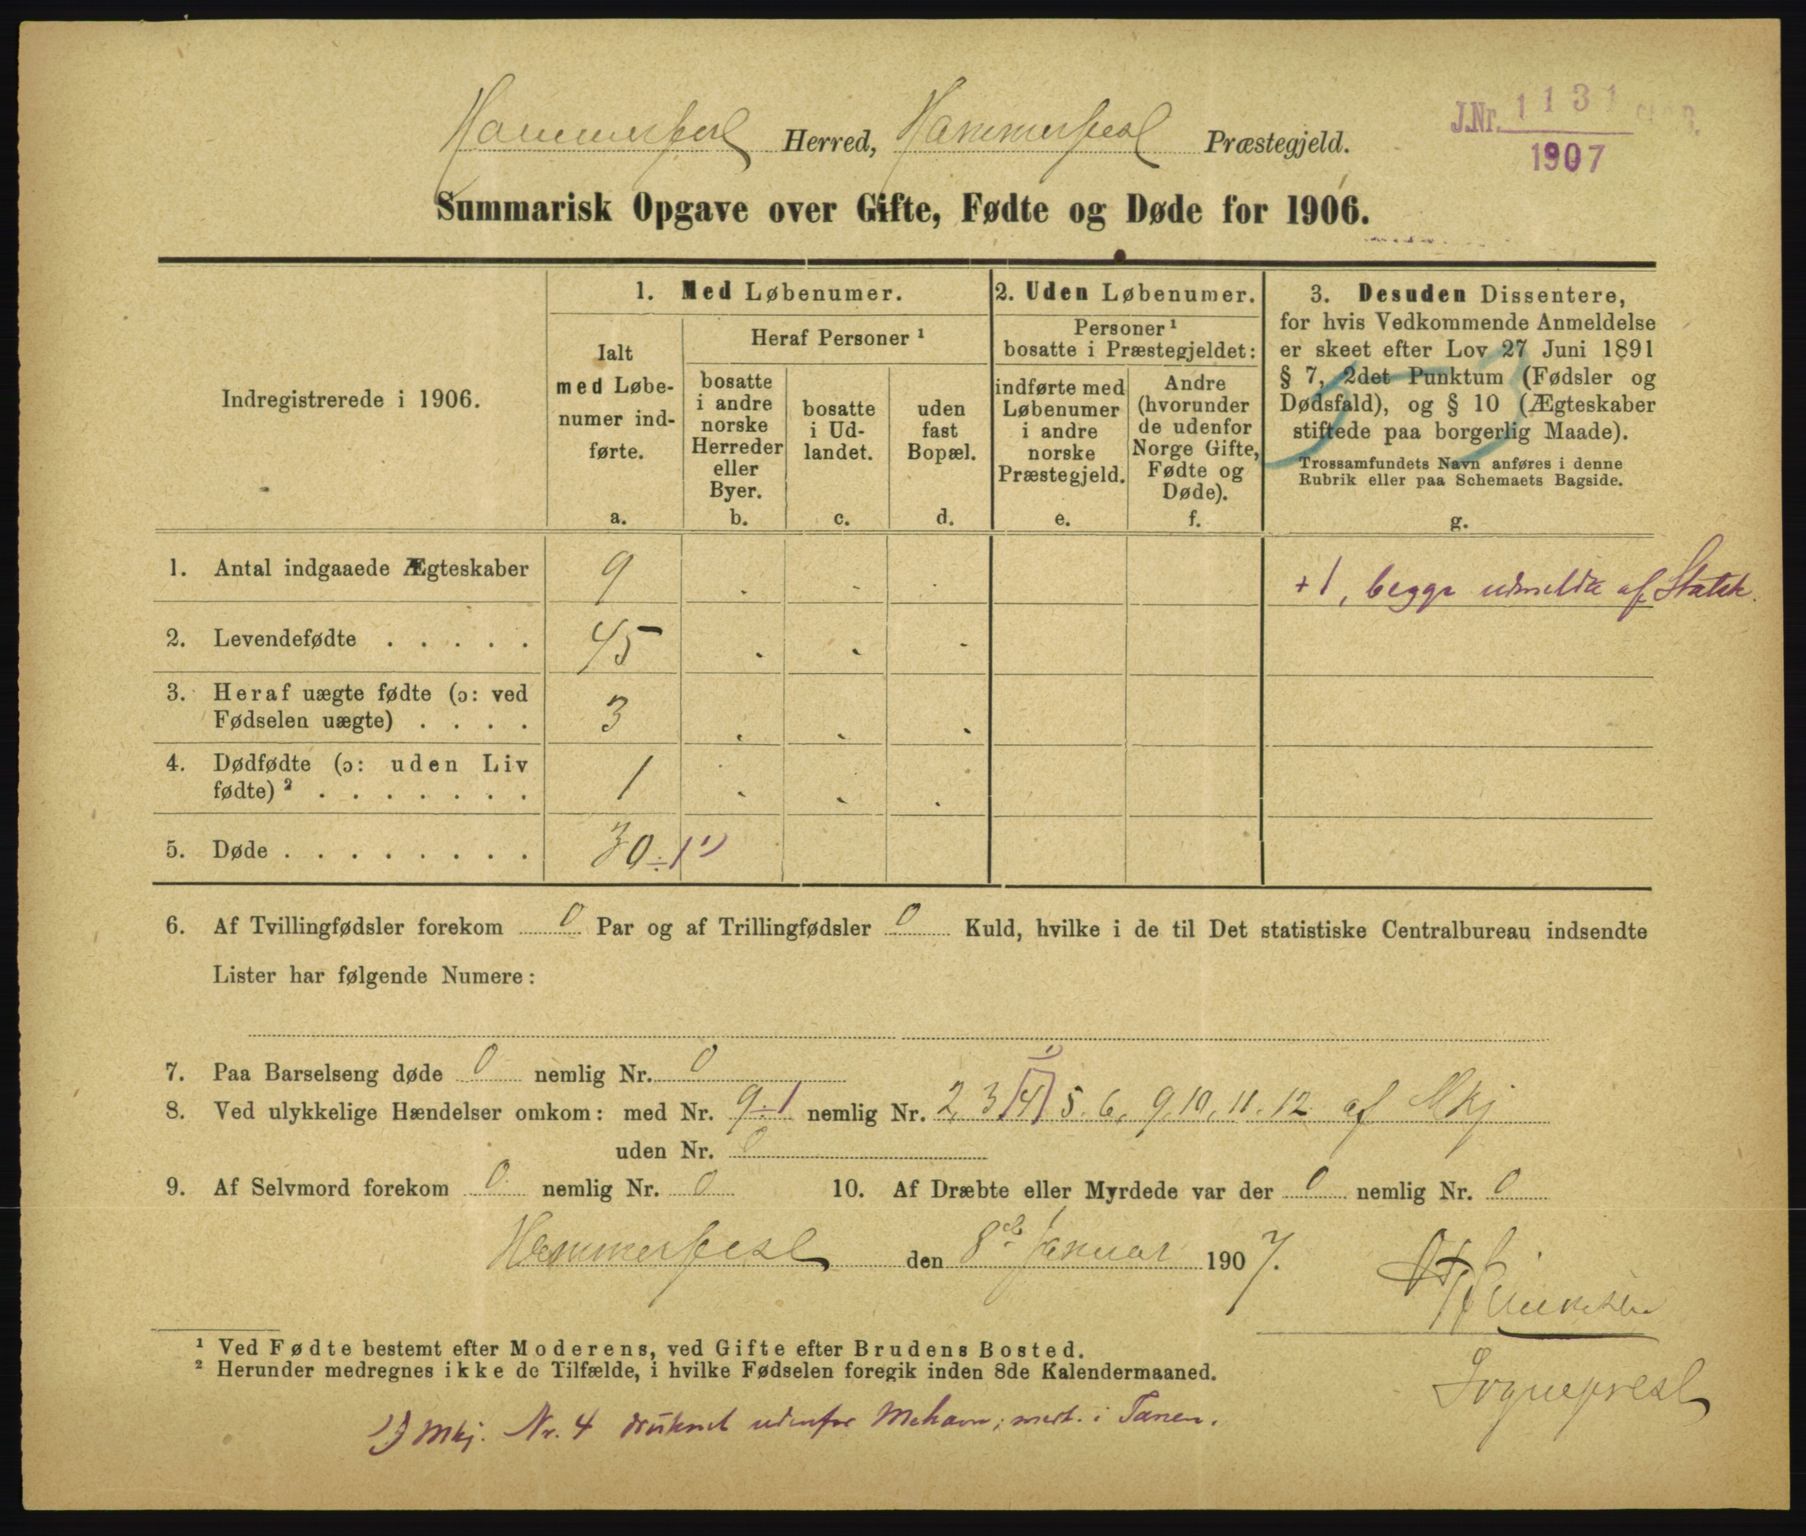 Hammerfest Herred, Hammerfest Præstegjeld.
J.Nr. 1131
1907
Summarisk Opgave over Gifte, Fødte og Døde for 1906.
Indregistrerede i 1906.
1. Med Løbenumer.
Ialt med Løbenumer indførte.
a.
Heraf Personer ¹
bosatte i andre norske Herreder eller Byer.
b.
bosatte i Udlandet.
c.
uden fast Bopæl.
d.
2. Uden Løbenumer.
Personer ¹ bosatte i Præstegjeldet:
indførte med Løbenumer i andre norske Præstegjeld.
e.
Andre (hvorunder de udenfor Norge Gifte, Fødte og Døde).
f.
3. Desuden Dissentere,
for hvis Vedkommende Anmeldelse
er skeet efter Lov 27 Juni 1891
§ 7, 2det Punktum (Fødsler og
Dødsfald), og § 10 (Ægteskaber
stiftede paa borgerlig Maade).
Trossamfundets Navn anføres i denne
Rubrik eller paa Schemaets Bagside.
g.
1. Antal indgaaede Ægteskaber 9 . . . +1, begge udmeldte af Statsk.
2. Levendefødte . . . . . 45 . . .
3. Heraf uægte fødte (ɔ: ved
Fødselen uægte) . . . . 3 . . .
4. Dødfødte (ɔ: uden Liv
fødte) ² . . . . . . . 1 . . .
5. Døde . . . . . . . . 30 ÷1 ¹)
6. Af Tvillingfødsler forekom 0 Par og af Trillingfødsler 0 Kuld, hvilke i de til Det statistiske Centralbureau indsendte
Lister har følgende Numere:
7. Paa Barselseng døde 0 nemlig Nr. 0
8. Ved ulykkelige Hændelser omkom: med Nr. 9 ÷1 nemlig Nr. 2, 3 [4] ¹) 5. 6. 9. 10. 11. 12 af Mkj
uden Nr. 0
9. Af Selvmord forekom 0 nemlig Nr. 0 10. Af Dræbte eller Myrdede var der 0 nemlig Nr. 0
Hammerfest den 8de Januar 1907.
Sogneprest
¹ Ved Fødte bestemt efter Moderens, ved Gifte efter Brudens Bosted.
² Herunder medregnes ikke de Tilfælde, i hvilke Fødselen foregik inden 8de Kalendermaaned.
1) Mkj. Nr. 4 druknet udenfor Mehavn; medt. i Tanen.